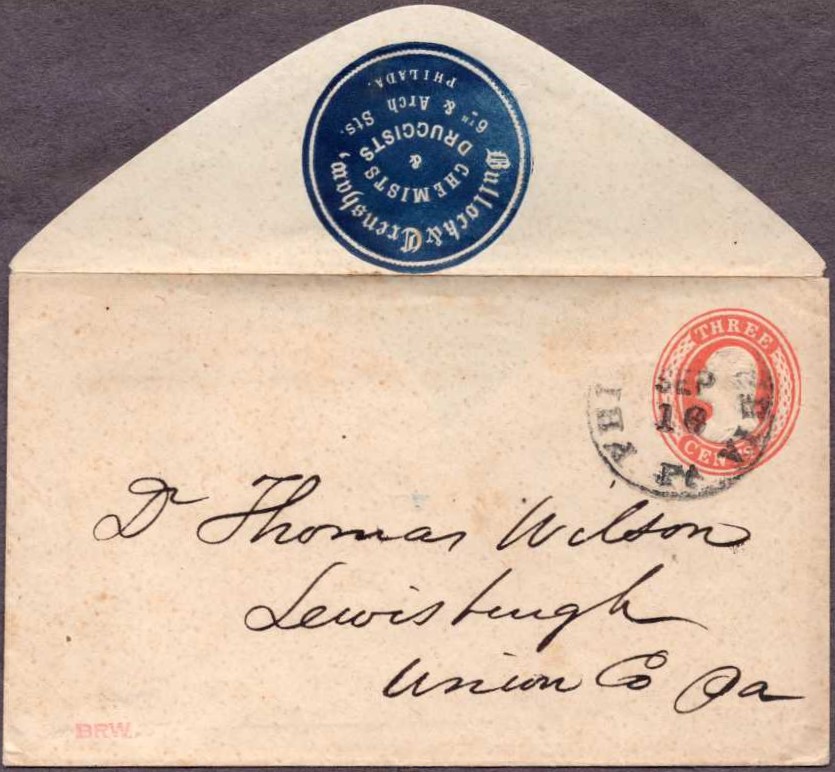 Bullock & Crenshaw,
CHEMISTS
&
DRUGGISTS
6TH & Arch Sts.
PHILADA.
THREE
CENTS
SEP
16
Dr Thomas Wilson
Lewisburgh
Union Co Pa
BRW.